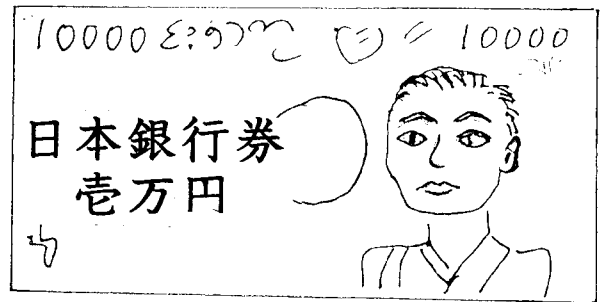 10000 10000
日本銀行券
壱万円